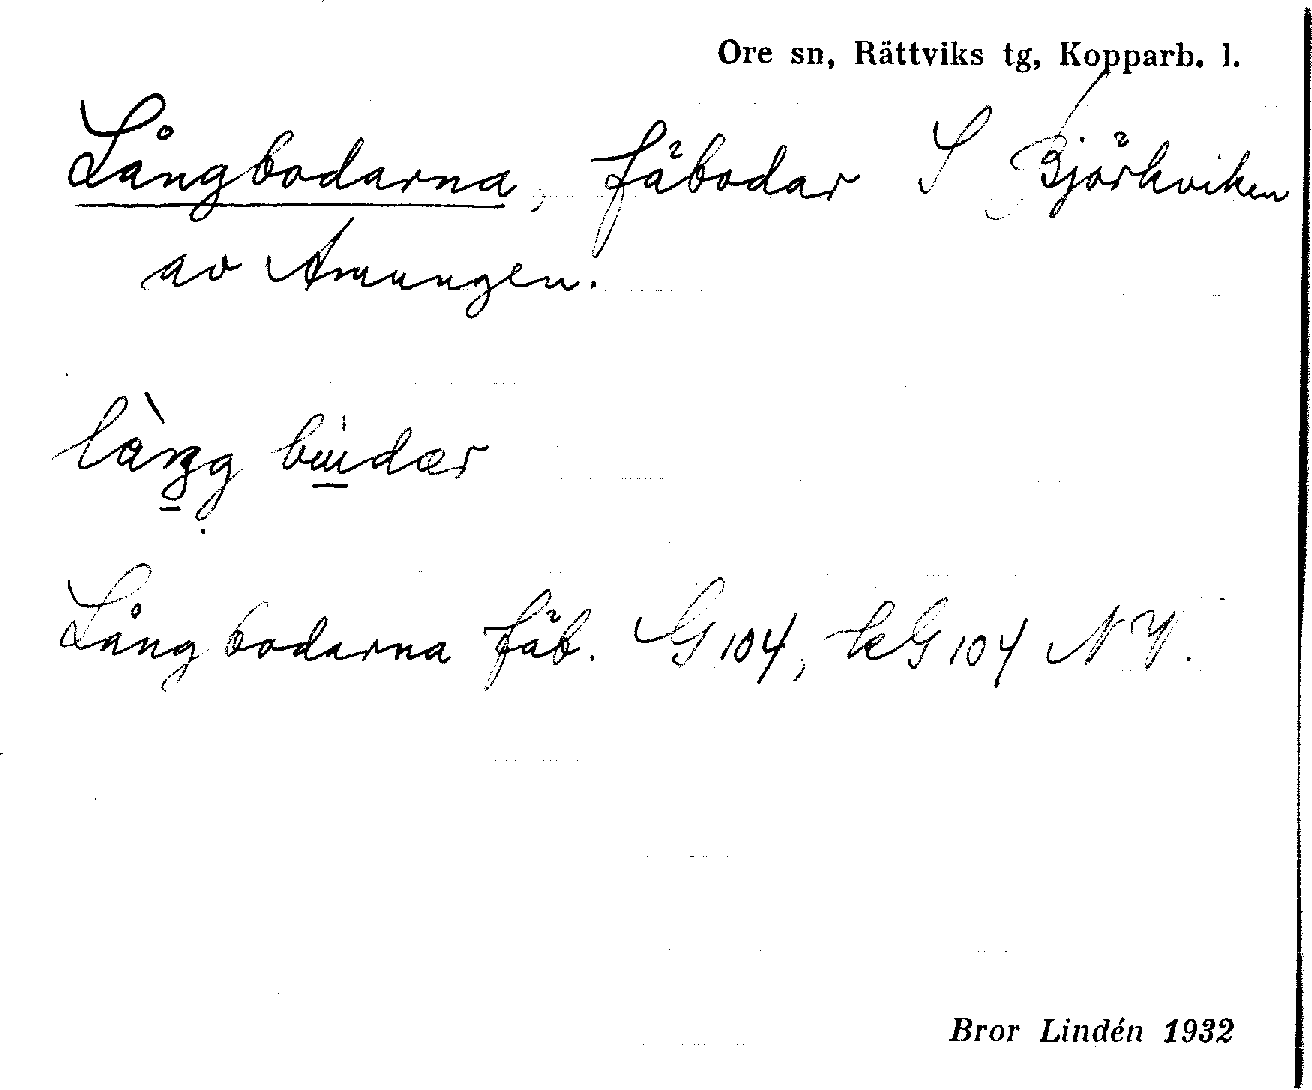 Ore sn, Rättviks tg, Kopparb. l.
Långbodarna, fäbodar S Björkviken
av Amungen.
Långbodarna fäb. G 104, kG 104 NV.
Bror Lindén 1932